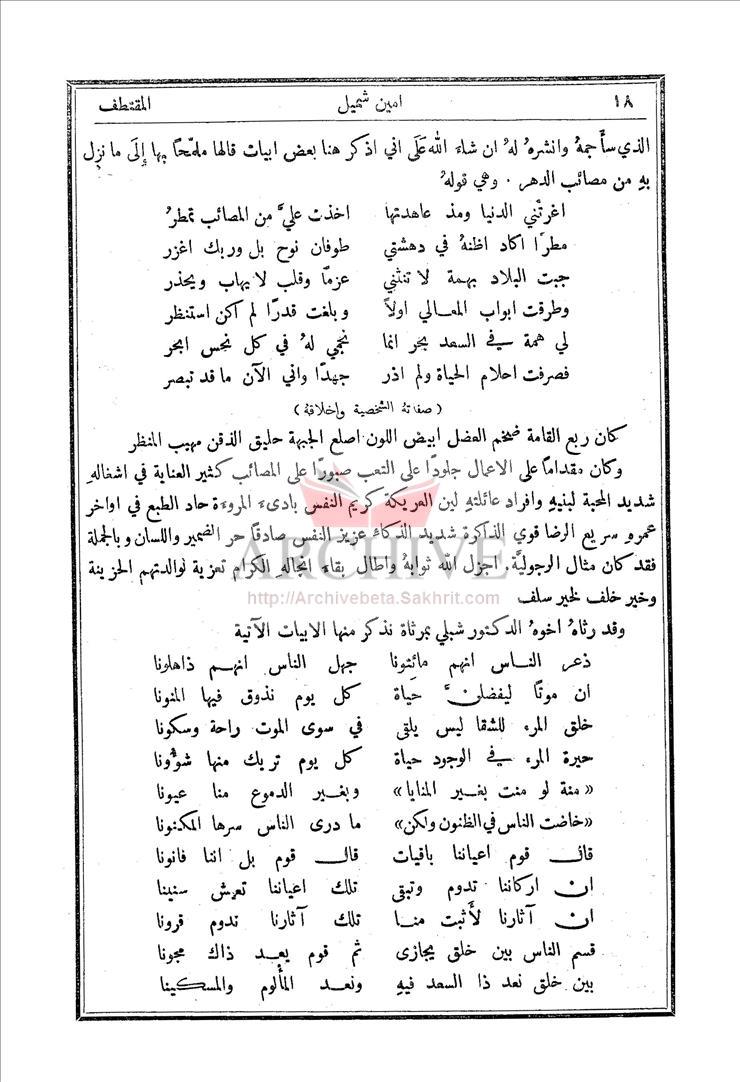 ١٨ امين شميل المقتطف
الذي سأجمعهُ وانشرهُ لهُ ان شاءَ الله عَلَى اني اذكر هنا بعض ابيات قالها ملمّحاً بها إِلَى ما نزل
بهِ من مصائب الدهر . وهي قولهُ
اغرتْني الدنيا ومذ عاهدتها اخذت عليَّ من المصائب تمطرُ
مطرًا اكاد اظنهُ في دهشتي طوفان نوح بل وربك اغزر
جبت البلاد بهمة لا تنثني عزمًا وقلب لا يهاب ويحذر
وطرقت ابواب المعالي اولاً وبلغت قدرًا لم اكن استنظر
لي همة في السعد بحر انما نجمي لهُ في كل نحس ابحر
فصرفت احلام الحياة ولم اذر جهدًا واني الآن ما قد تبصر
( صفاتهُ الشخصية واخلاقهُ )
كان ربع القامة ضخم العضل ابيض اللون اصلع الجبهة حليق الذقن مهيب المنظر
وكان مقدامًا على الاعمال جلودًا على التعب صبورًا على المصائب كثير العناية في اشغالهِ
شديد المحبة لبنيهِ وافراد عائلتهِ لين العريكة كريم النفس بادىءَ المروءة حاد الطبع في اواخر
عمرهِ سريع الرضا قوي الذاكرة شديد الذكاءِ عزيز النفس صادقًا حر الضمير واللسان وبالجملة
فقد كان مثال الرجوليَّة . اجزل الله ثوابهُ واطال بقاءَ انجالهِ الكرام تعزية لوالدتهم الحزينة
وخير خلف لخير سلف
وقد رثاهُ اخوهُ الدكتور شبلي بمرثاة نذكر منها الابيات الآتية
ذعر الناس انهم مائتونا جهل الناس انهم ذاهلونا
ان موتًا ليفضلنَّ حياة كل يوم نذوق فيها المنونا
خلق المرءُ للشقا ليس يلقى في سوى الموت راحة وسكونا
حيرة المرءِ في الوجود حياة كل يوم تريك منها شؤُونا
«منة لو منت بغير المنايا» وبغير الدموع منا عيونا
«خاضت الناس في الظنون ولكن» ما درى الناس سرها المكنونا
قال قوم اعياننا باقيات قال قوم بل اننا فانونا
ان اركاننا تدوم وتبقى تلك اعياننا تعيش سنينا
ان آثارنا لأَثبت منا تلك آثارنا تدوم قرونا
قسم الناس بين خلق يجازى ثم قوم يعد ذاك مجونا
بين خلق نعد ذا السعد فيهِ ونعد المألوم والمسكينا
ARCHIVE
http://Archivebeta.Sakhrit.com